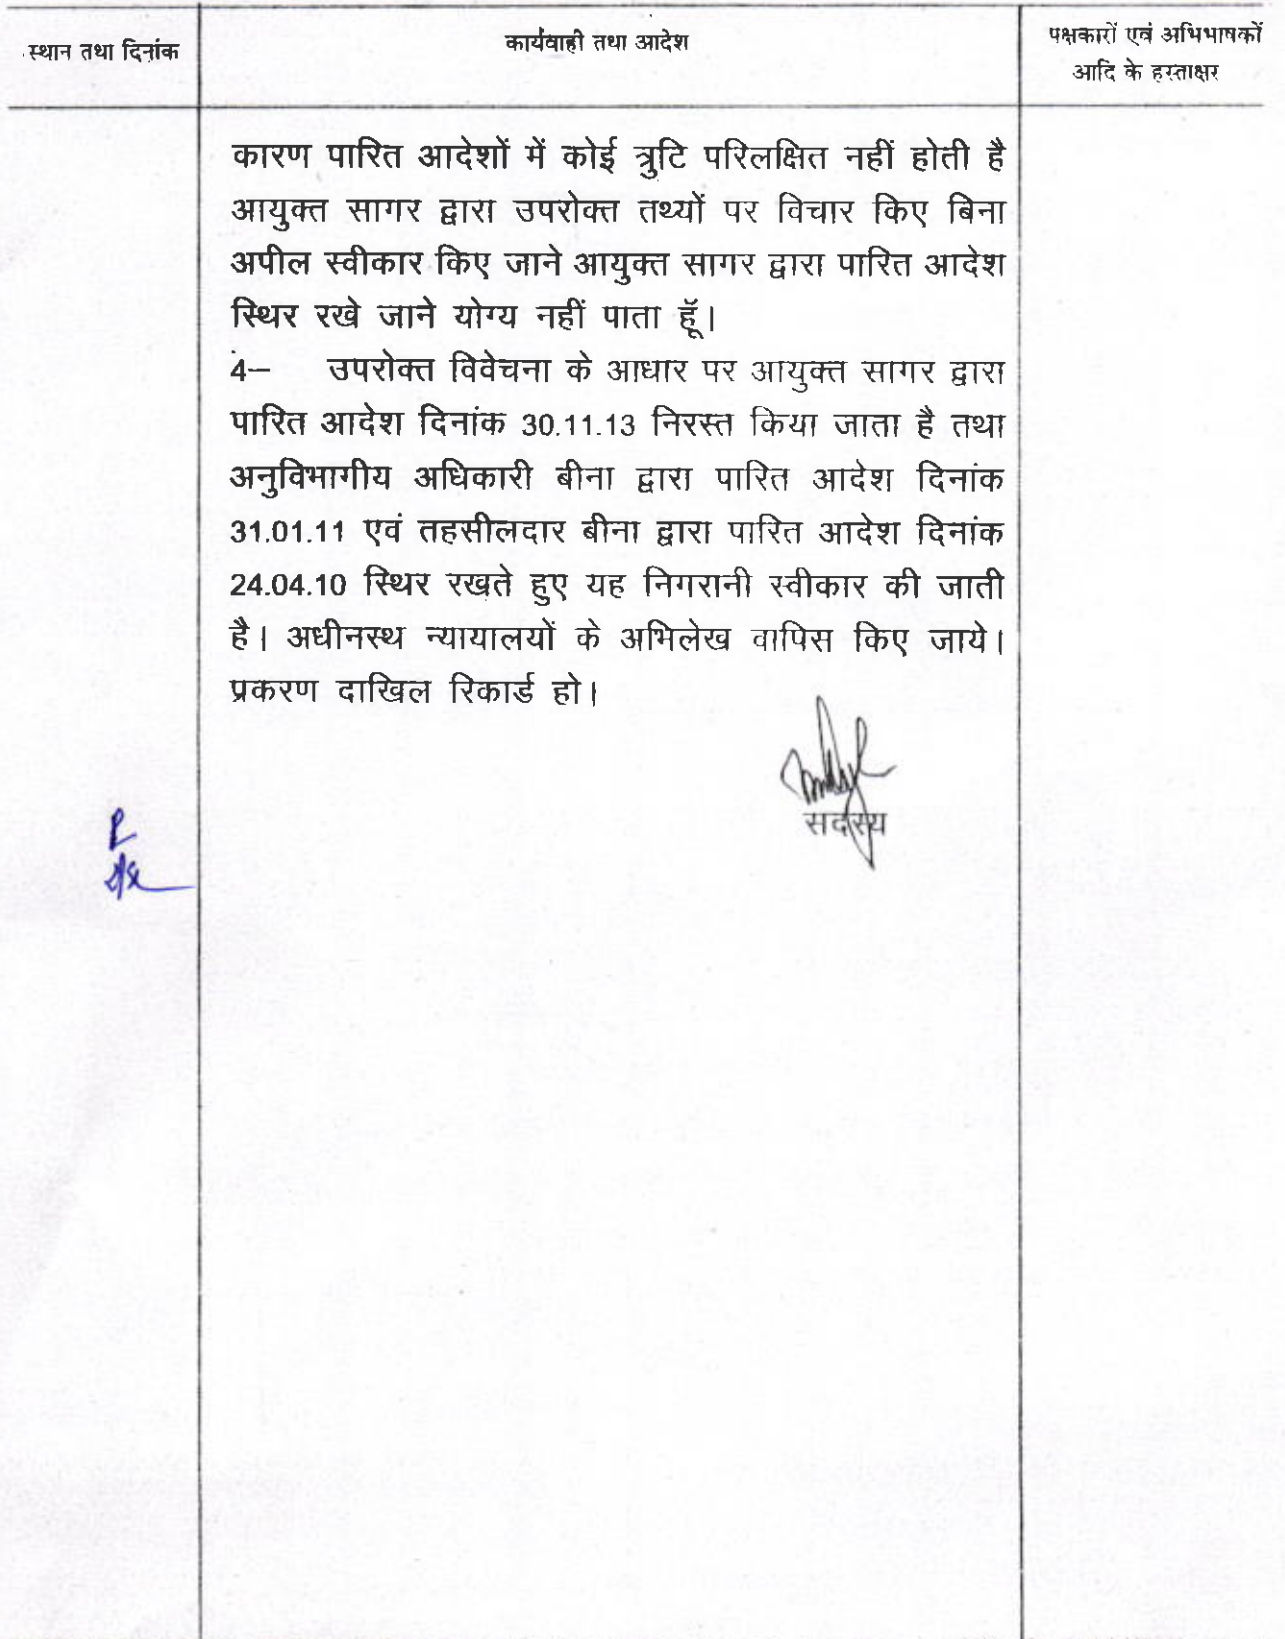 स्थान तथा दिनांक
कार्यवाही तथा आदेश
पक्षकारों एवं अभिभाषकों
आदि के हस्ताक्षर
कारण पारित आदेशों में कोई त्रुटि परिलक्षित नहीं होती है
आयुक्त सागर द्वारा उपरोक्त तथ्यों पर विचार किए बिना
अपील स्वीकार किए जाने आयुक्त सागर द्वारा पारित आदेश
स्थिर रखे जाने योग्य नहीं पाता हूॅ।
4— उपरोक्त विवेचना के आधार पर आयुक्त सागर द्वारा
पारित आदेश दिनांक 30.11.13 निरस्त किया जाता है तथा
अनुविभागीय अधिकारी बीना द्वारा पारित आदेश दिनांक
31.01.11 एवं तहसीलदार बीना द्वारा पारित आदेश दिनांक
24.04.10 स्थिर रखते हुए यह निगरानी स्वीकार की जाती
है। अधीनस्थ न्यायालयों के अभिलेख वापिस किए जाये।
प्रकरण दाखिल रिकार्ड हो।
सदस्य